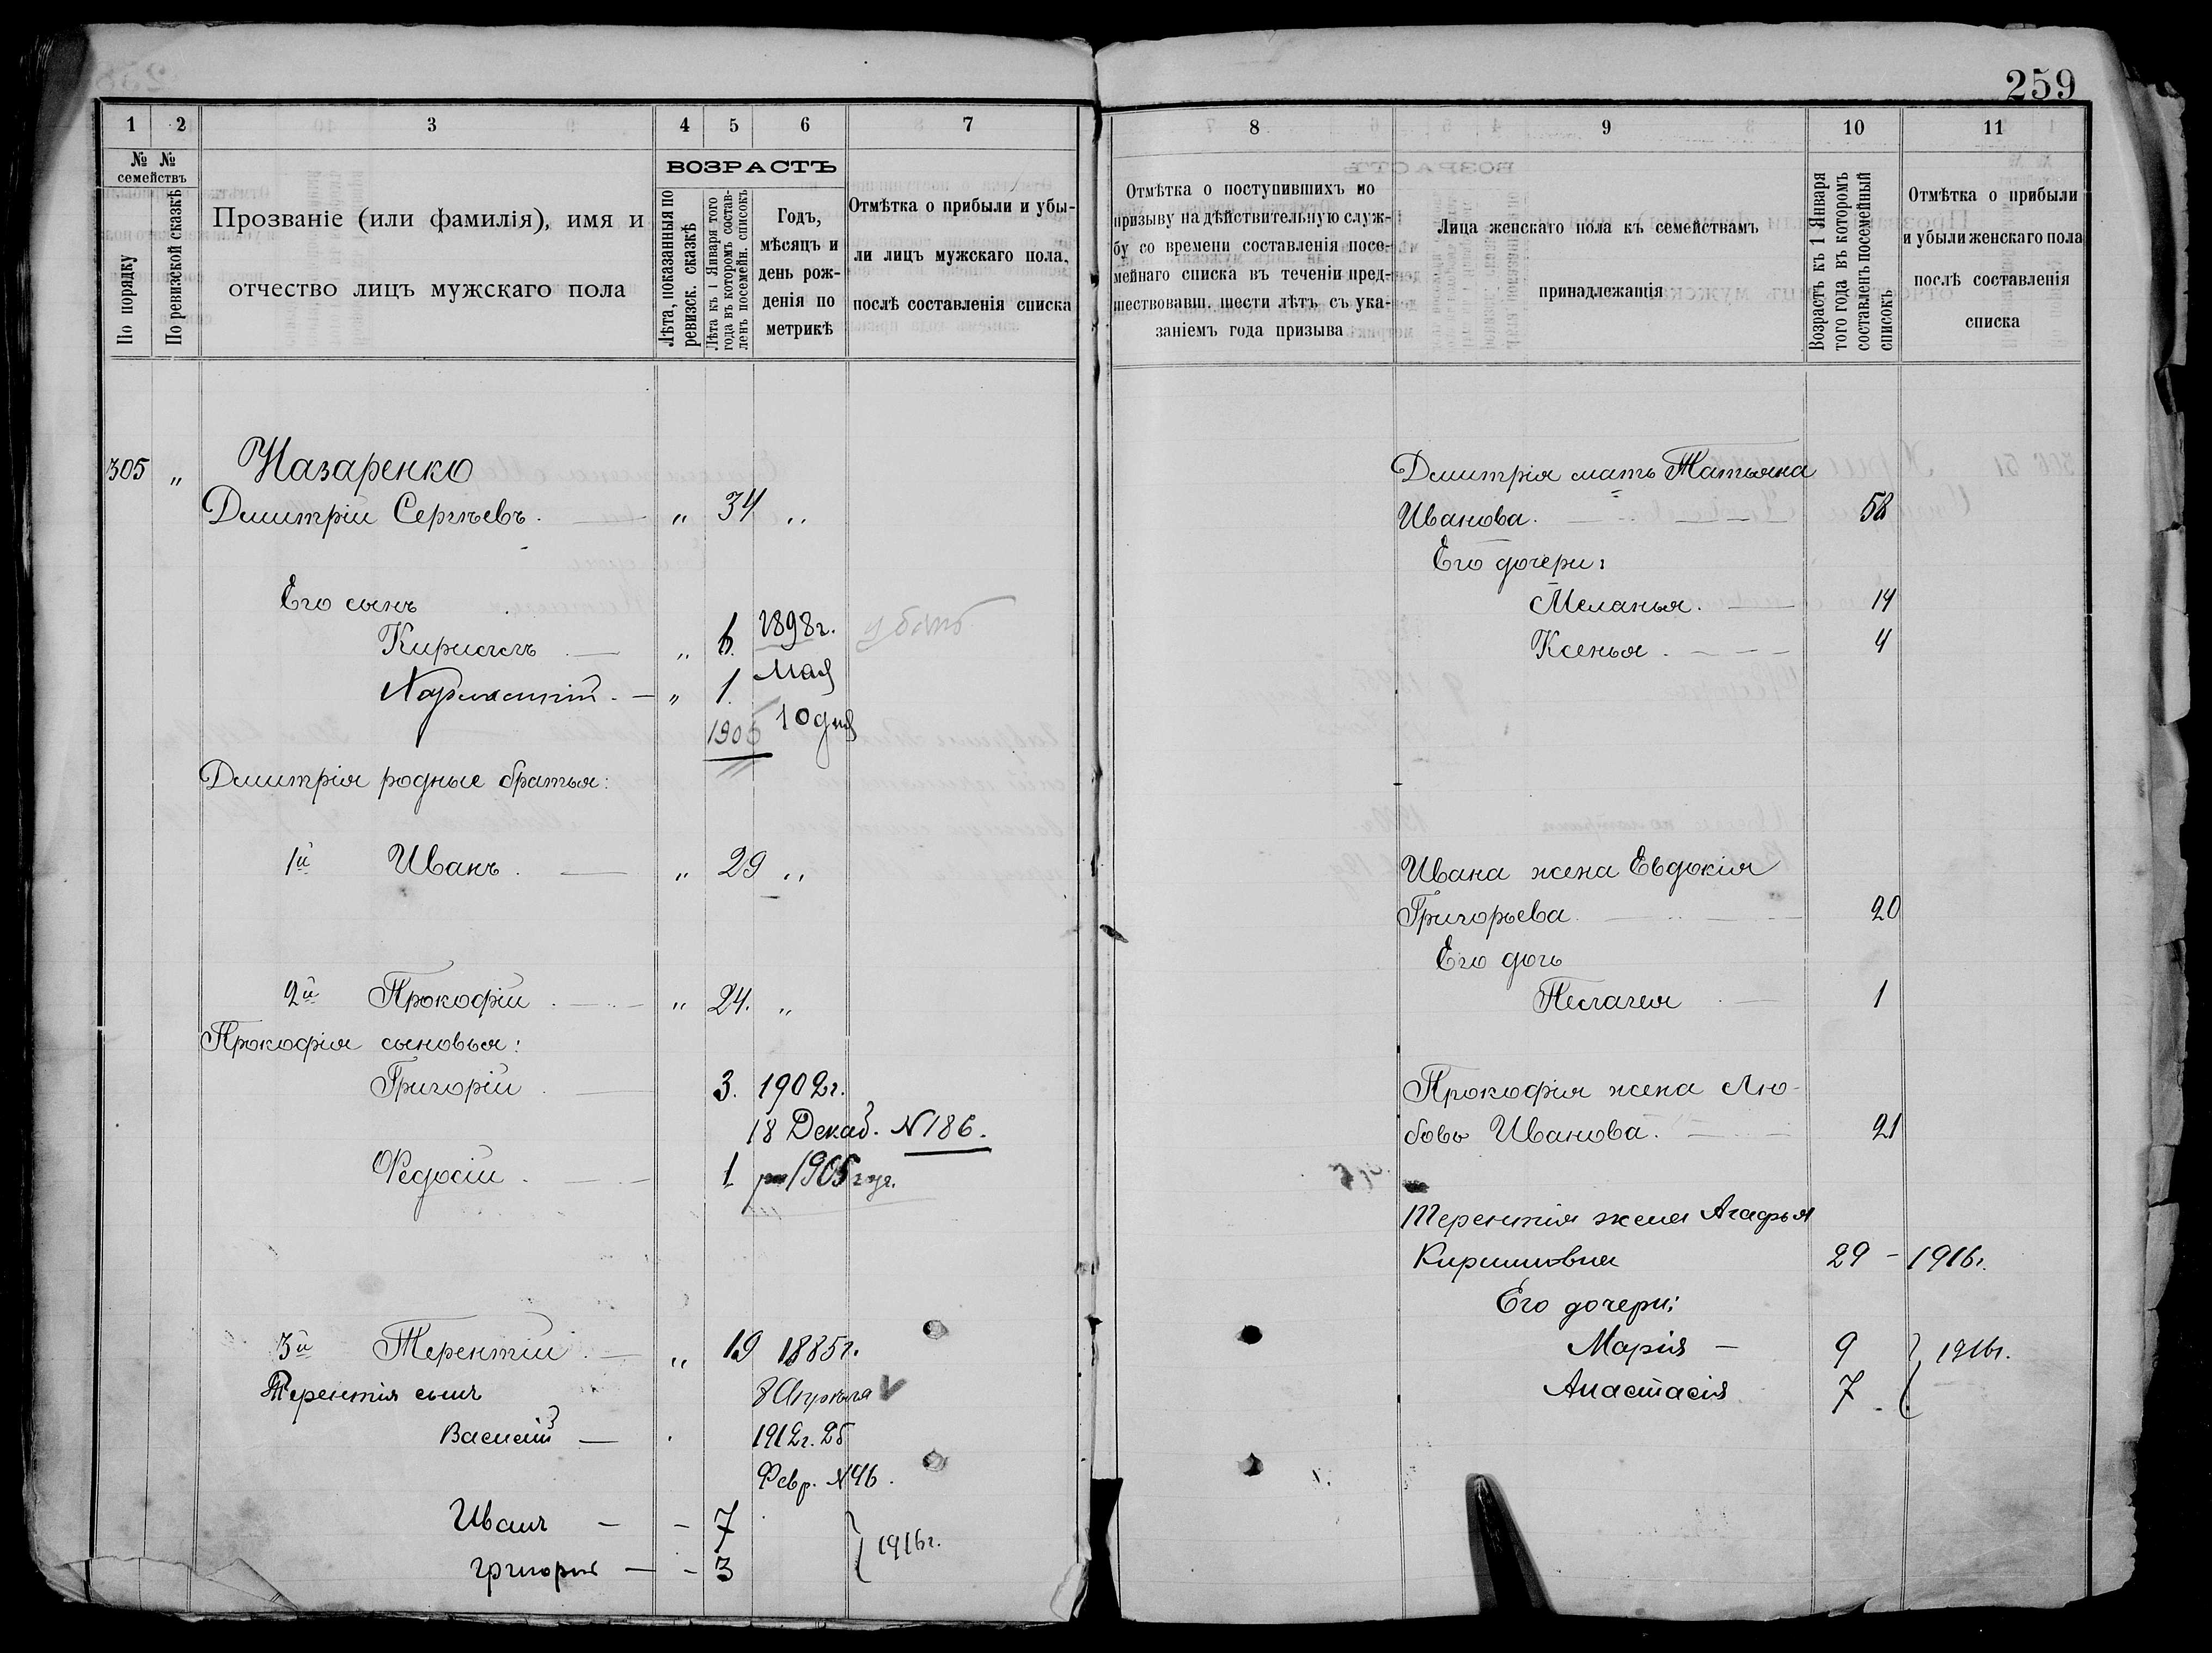 259
1 2 3 4 5 6 7
№ № семействъ
По порядку
По ревизской сказкѣ
Прозваніе (или фамилія), имя и
отчество лицъ мужскаго пола
ВОЗРАСТЪ
Лѣта, показанныя по
ревизск. сказкѣ
Лѣта къ 1 Января того
года въ которомъ состав-
ленъ посемейн. списокъ
Годъ,
мѣсяцъ и
день рож-
денія по
метрикѣ
Отмѣтка о прибыли и убы-
ли лицъ мужскаго пола,
послѣ составленія списка
305 „ Назаренко
Дмитрій Сергѣевъ. — „ 34 „
Его сынъ
Кириллъ — „ 6. 1898г. убитъ
Мая
Харлампій. — „ 1.
10 дня
1906
Дмитрія родные братья:
1й Иванъ. — „ 29 „
2й Прокофій. — „ 24. „
Прокофія сыновья:
Григорій. — 3. 1902г.
18 Декаб. N186.
Ѳедосій. — 1 1905 год.
3й Терентій. — „ 19 1885г.
8 Апрѣля V
Терентія сынъ
Василій — 1912г. 25
Февр. N46.
Иванъ — - 7
Григорій — - 3 } 1916г.
8 9 10 11
Отмѣтка о поступившихъ по
призыву на дѣйствительную служ-
бу со времени составленія посе-
мейнаго списка въ теченіи пред-
шествовавш. шести лѣтъ съ ука-
заніемъ года призыва
Лица женскаго пола къ семействамъ
принадлежащія
Возрастъ къ 1 Января
того года въ которомъ
составленъ посемейный
списокъ
Отмѣтка о прибыли
и убыли женскаго пола
послѣ составленія
списка
Дмитрія мать Татьяна
Иванова. — 58
Его дочери:
Меланья. — 14
Ксенья. — 4
Ивана жена Евдокія
Григорьева. — 20
Его дочь
Пелагея — 1
Прокофія жена Лю-
бовь Иванова. — 21
Терентія жена Агафья
Кирилловна 29 - 1916г.
Его дочери:
Марія — 9
Анастасія 7 } 1916г.